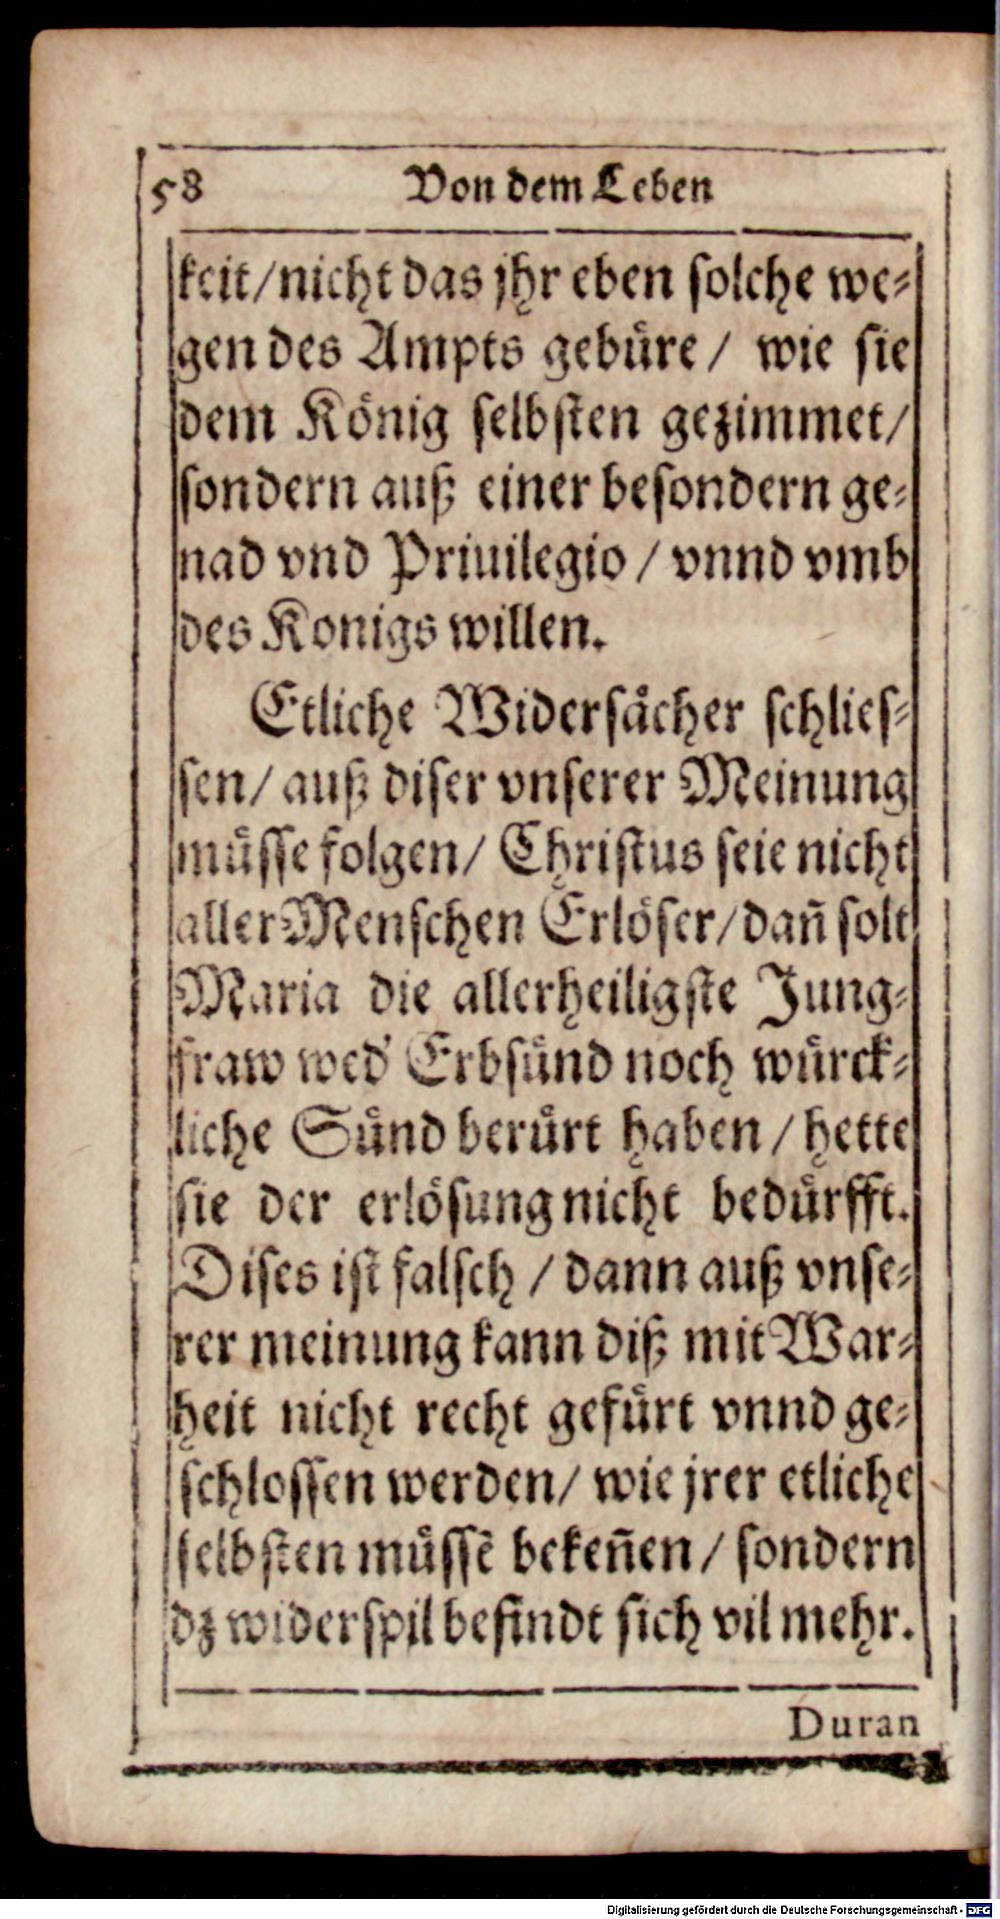 58 Von dem Leben
keit/nicht das jhr eben solche we⸗
gen des Ampts gebüre/ wie sie
dem König selbsten gezimmet/
sondern auß einer besondern ge⸗
nad vnd Priuilegio / vnnd vmb
des Konigs willen.
Etliche Widersächer schlies⸗
sen/ auß diser vnserer Meinung
müsse folgen/ Christus seie nicht
aller Menschen Erlöser/dañ solt
Maria die allerheiligste Jung⸗
fraw wed' Erbsünd noch würck⸗
liche Sünd berürt haben / hette
sie der erlösung nicht bedürfft.
Dises ist falsch / dann auß vnse⸗
rer meinung kann diß mit War⸗
heit nicht recht gefürt vnnd ge⸗
schlossen werden/ wie jrer etliche
selbsten müssẽ bekeñen / sondern
dz widerspil befindt sich vil mehr.
Duran
Digitalisierung gefördert durch die Deutsche Forschungsgemeinschaft - DFG